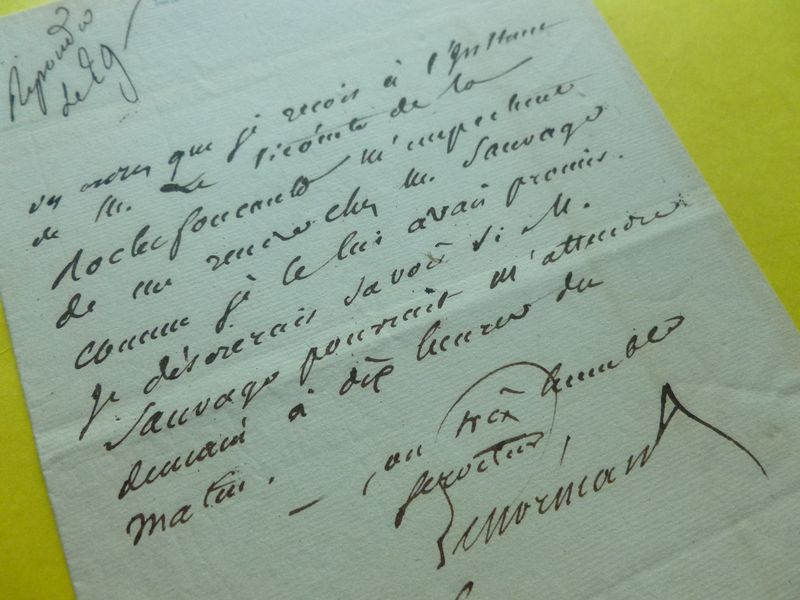 Répondu
le 29
des ordres que je reçois à l'instant
de M. Le Vicomte de La
Rochefoucauld m'empêchent
de me rendre chez M. Sauvage
comme je le lui avais promis.
Je désirerais savoir si M.
Sauvage pourrait m'attendre
demain à dix heures du
matin. — son très humble
serviteur,
Lenormant